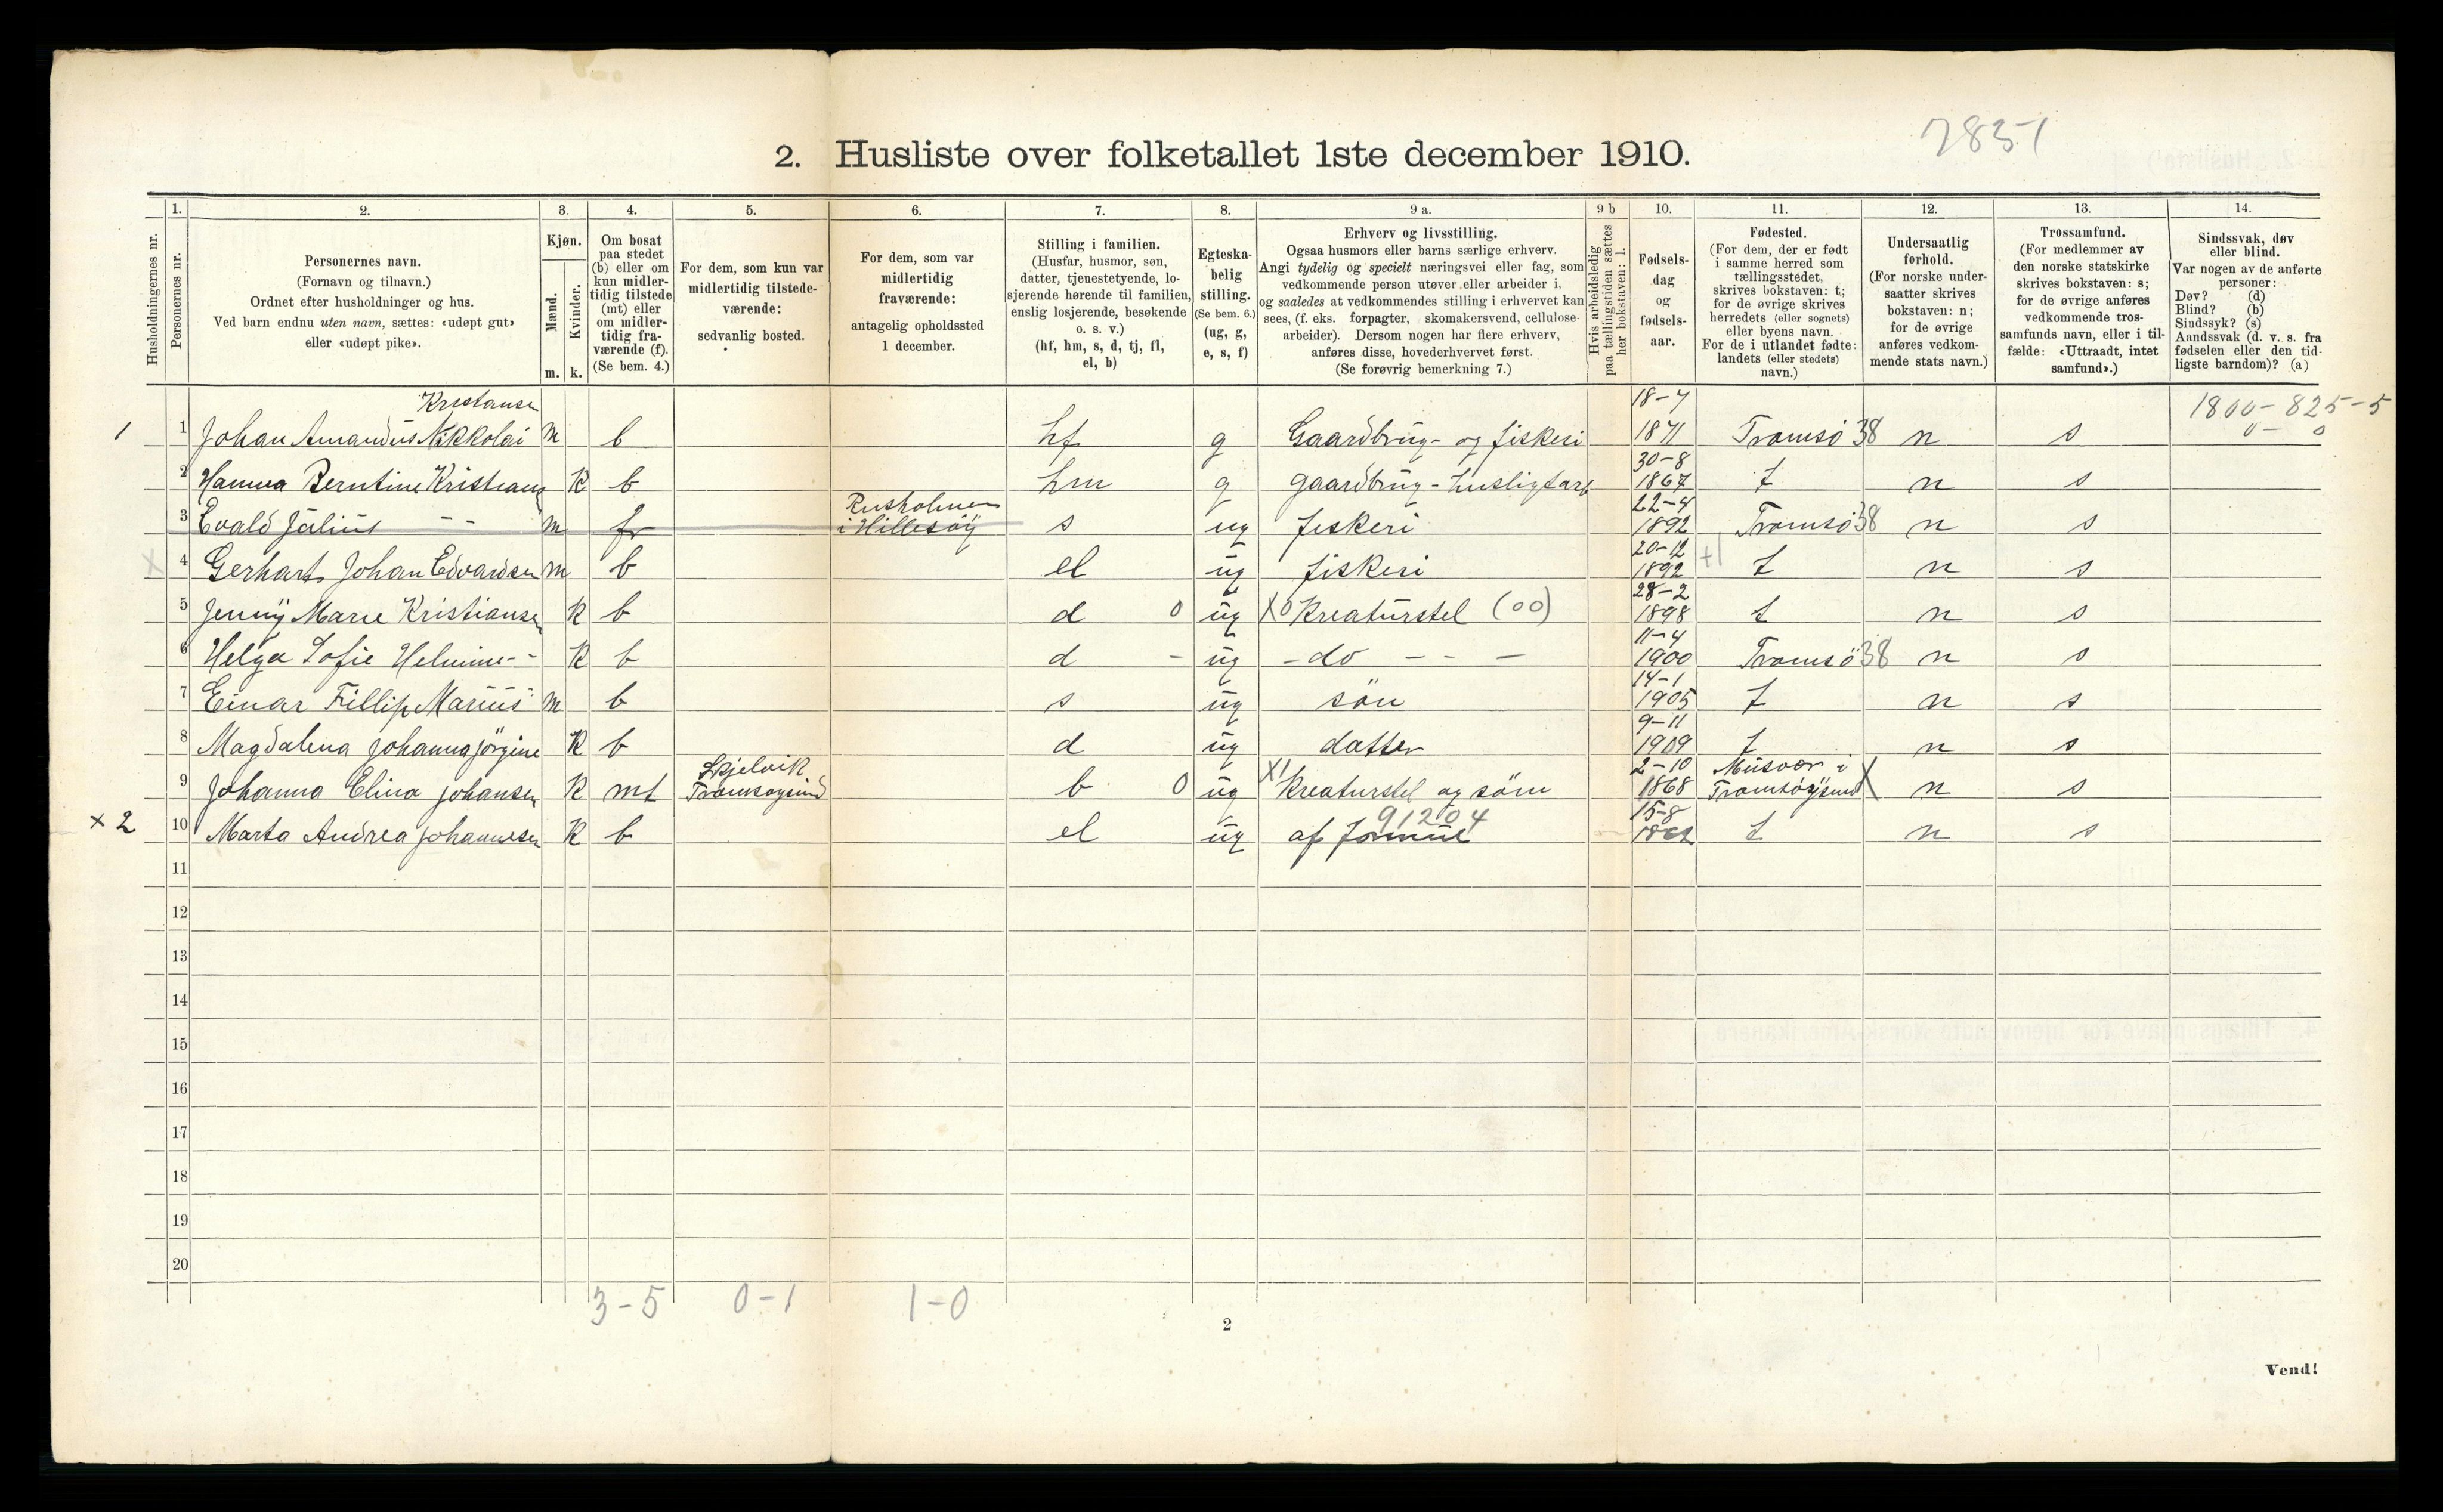 7851
2. Husliste over folketallet 1ste december 1910.
Husholdningernes nr.
1. Personernes nr.
2. Personernes navn. (Fornavn og tilnavn.) Ordnet efter husholdninger og hus. Ved barn endnu uten navn, sættes: «udøpt gut» eller «udøpt pike».
3. Kjøn. Mænd. m. Kvinder. k.
4. Om bosat paa stedet (b) eller om kun midler-tidig tilstede (mt) eller om midler-tidig fra-værende (f). (Se bem. 4.)
5. For dem, som kun var midlertidig tilstede-værende: sedvanlig bosted.
6. For dem, som var midlertidig fraværende: antagelig opholdssted 1 december.
7. Stilling i familien. (Husfar, husmor, søn, datter, tjenestetyende, lo-sjerende hørende til familien, enslig losjerende, besøkende o. s. v.) (hf, hm, s, d, tj, fl, el, b)
8. Egteska-belig stilling. (Se bem. 6.) (ug, g, e, s, f)
9 a. Erhverv og livsstilling. Ogsaa husmors eller barns særlige erhverv. Angi tydelig og specielt næringsvei eller fag, som vedkommende person utøver eller arbeider i, og saaledes at vedkommendes stilling i erhvervet kan sees, (f. eks. forpagter, skomakersvend, cellulose-arbeider). Dersom nogen har flere erhverv, anføres disse, hovederhvervet først. (Se forøvrig bemerkning 7.)
9 b Hvis arbeidsledig paa tællingstiden sættes her bokstaven: l.
10. Fødsels-dag og fødsels-aar.
11. Fødested. (For dem, der er født i samme herred som tællingsstedet, skrives bokstaven: t; for de øvrige skrives herredets (eller sognets) eller byens navn. For de i utlandet fødte: landets (eller stedets) navn.)
12. Undersaatlig forhold. (For norske under-saatter skrives bokstaven: n; for de øvrige anføres vedkom-mende stats navn.)
13. Trossamfund. (For medlemmer av den norske statskirke skrives bokstaven: s; for de øvrige anføres vedkommende tros-samfunds navn, eller i til-fælde: «Uttraadt, intet samfund».)
14. Sindssvak, døv eller blind. Var nogen av de anførte personer: Døv? (d) Blind? (b) Sindssyk? (s) Aandssvak (d. v. s. fra fødselen eller den tid-ligste barndom)? (a)
1800-825-5
0- 0
1 1 Johan Amandus Nikkolai Kristansen m b hf g Gaardbrug- og fiskeri 18-7 1871 Tromsö 38 n s
2 Hanna Berntine Kristians K b hm g gaardbrug - husligt arb 30-8 1867 t n s
3 Evald Julius - - m fr Rusholmen i Hillesöy s ug fiskeri 22-4 1892 Tromsö 38 n s
X 4 Gerhart Johan Edvardsen m b el ug fiskeri 20-12 1892 +1 t n s
5 Jenny Marie Kristiansen K b d 0 ug X0 Kreaturstel (00) 28-2 1898 t n s
6 Helga Sofie Helmine - - K b d - ug - do - - - 11-4 1900 Tromsö 38 n s
7 Einar Fillip Marius m b s ug sön 14-1 1905 t n s
8 Magdalena Johanna Jörgine K b d ug datter 9-11 1909 t n s
9 Johanna Elina Johansen K mt Skjelvik Tromsoysund b 0 ug X1 Kreaturstel og söm 2-10 1868 Musvær i Tromsöysund X n s
x 2 10 Marta Andrea Johannesen K b el ug af formue 91204 15-8 t n s
11
12
13
14
15
16
17
18
19
20
3-5 0-1 1-0
2
Vend!